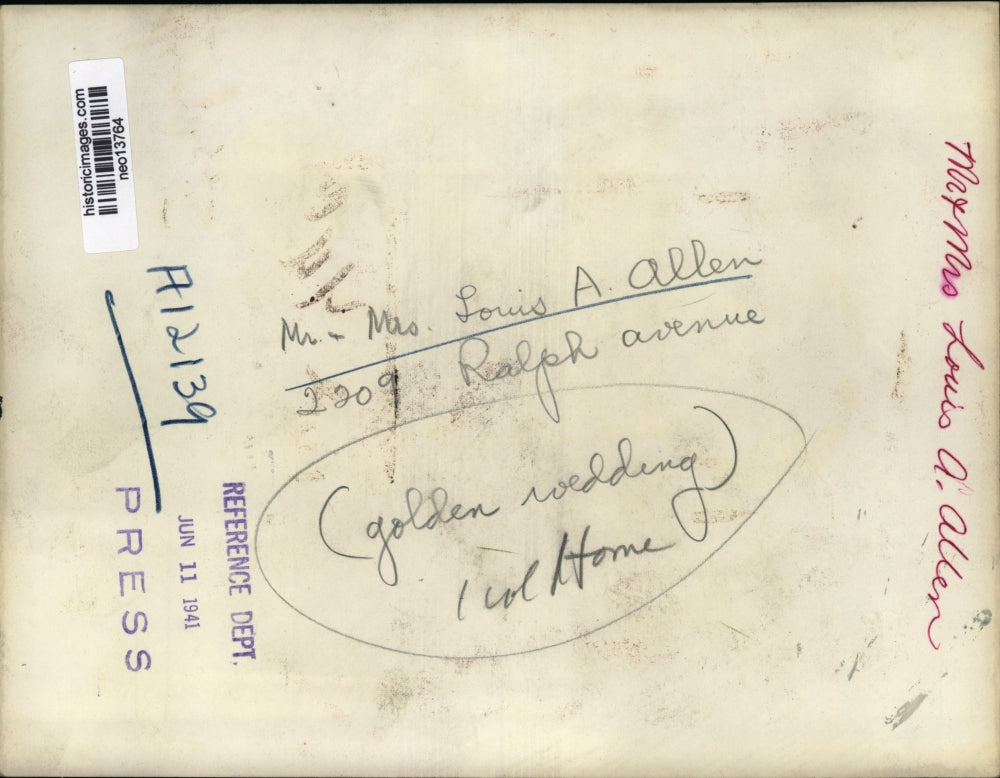 historicimages.com
neo13764
A12139
REFERENCE DEPT.
JUN 11 1941
PRESS
Mr. & Mrs. Louis A. Allen
2209 Ralph avenue
(golden wedding)
1 col Home
Mr & Mrs Louis A. Allen